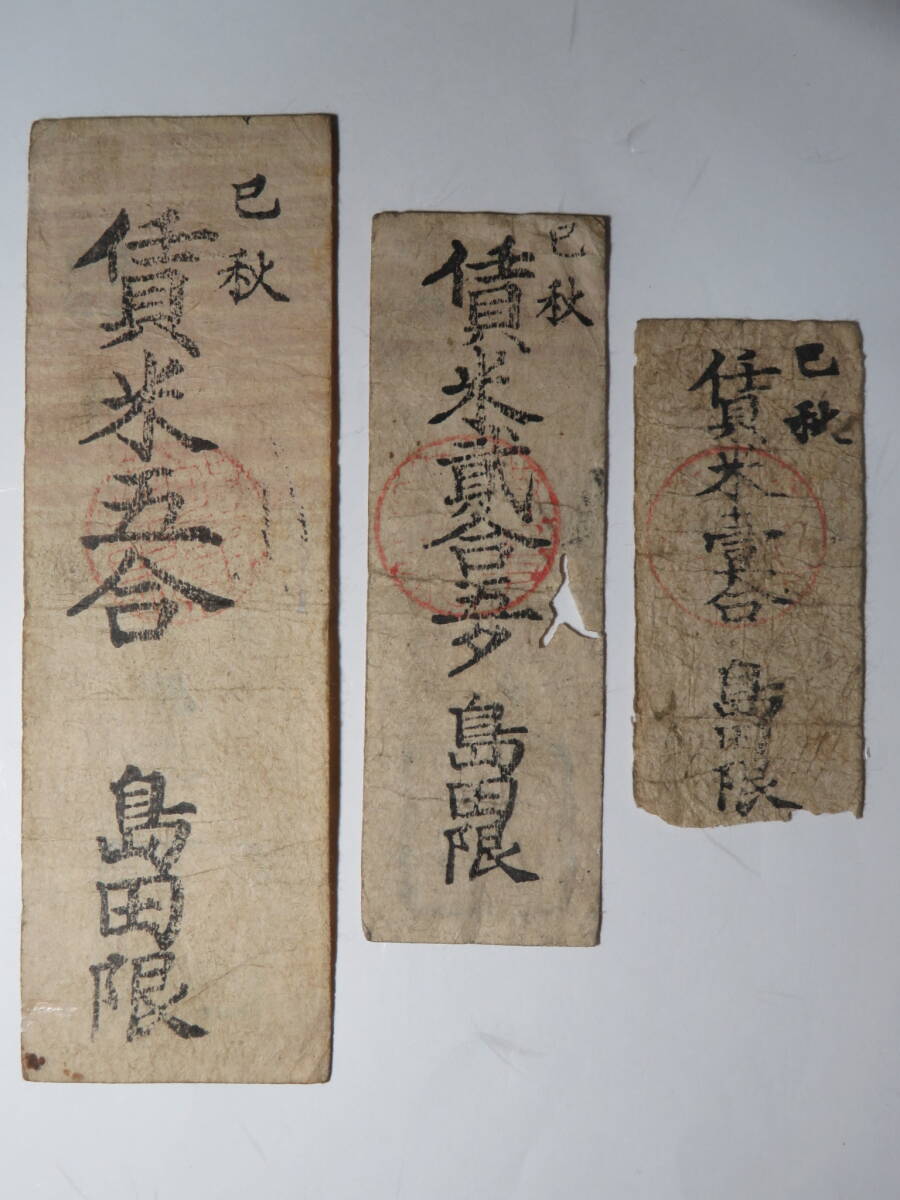 巳秋
賃米五合 島田限
巳秋
賃米貳合五夕 島田限
巳秋
賃米壹合 島田限